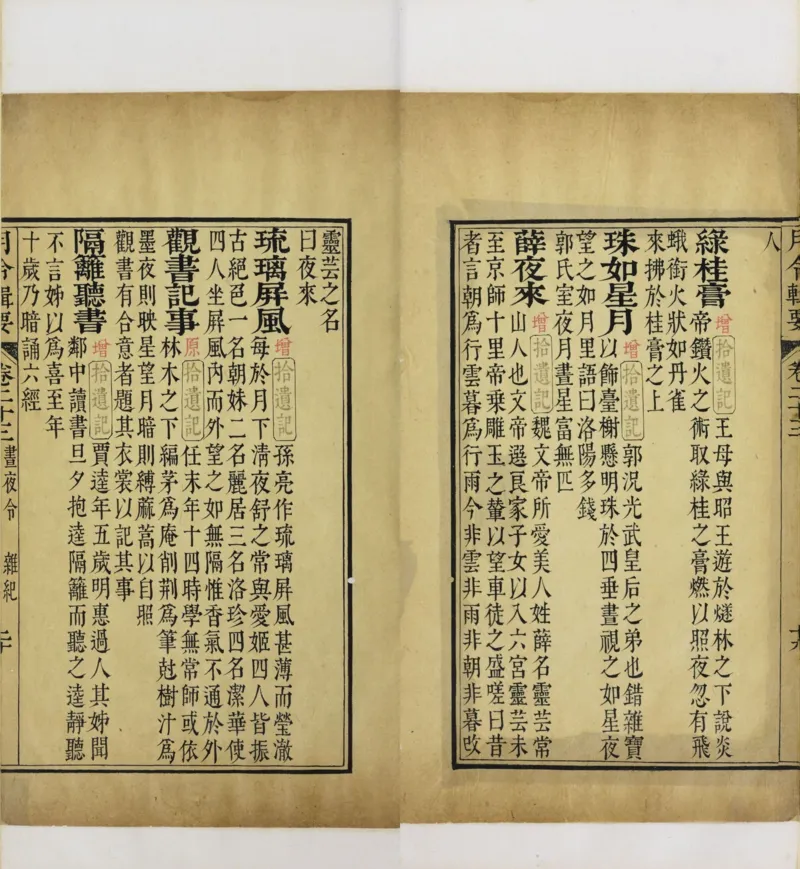 月令輯要 卷二十三
人
綠桂膏 增 拾遺記 王母與昭王遊於燧林之下說炎
帝鑽火之術取綠桂之膏燃以照夜忽有飛
蛾銜火狀如丹雀
來拂於桂膏之上
珠如星月 增 拾遺記 郭況光武皇后之弟也錯雜寶
以飾臺榭懸明珠於四垂晝視之如星夜
望之如月里語曰洛陽多錢
郭氏室夜月晝星富無匹
薛夜來 增 拾遺記 魏文帝所愛美人姓薛名靈芸常
山人也文帝選良家子女以入六宮靈芸未
至京師十里帝乘雕玉之輦以望車徒之盛嗟曰昔
者言朝爲行雲暮爲行雨今非雲非雨非朝非暮改
靈芸之名
曰夜來
琉璃屏風 增 拾遺記 孫亮作琉璃屏風甚薄而瑩澈
每於月下淸夜舒之常與愛姬四人皆振
古絕色一名朝姝二名麗居三名洛珍四名潔華使
四人坐屏風內而外望之如無隔惟香氣不通於外
觀書記事 原 拾遺記 任末年十四時學無常師或依
林木之下編茅爲庵削荆爲筆尅樹汁爲
墨夜則映星望月暗則縛蔴蒿以自照
觀書有合意者題其衣裳以記其事
隔籬聽書 增 拾遺記 賈逵年五歲明惠過人其姊聞
鄰中讀書旦夕抱逵隔籬而聽之逵靜聽
不言姊以爲喜至年
十歲乃暗誦六經
月令輯要 卷二十三 晝夜令 雜紀 二十